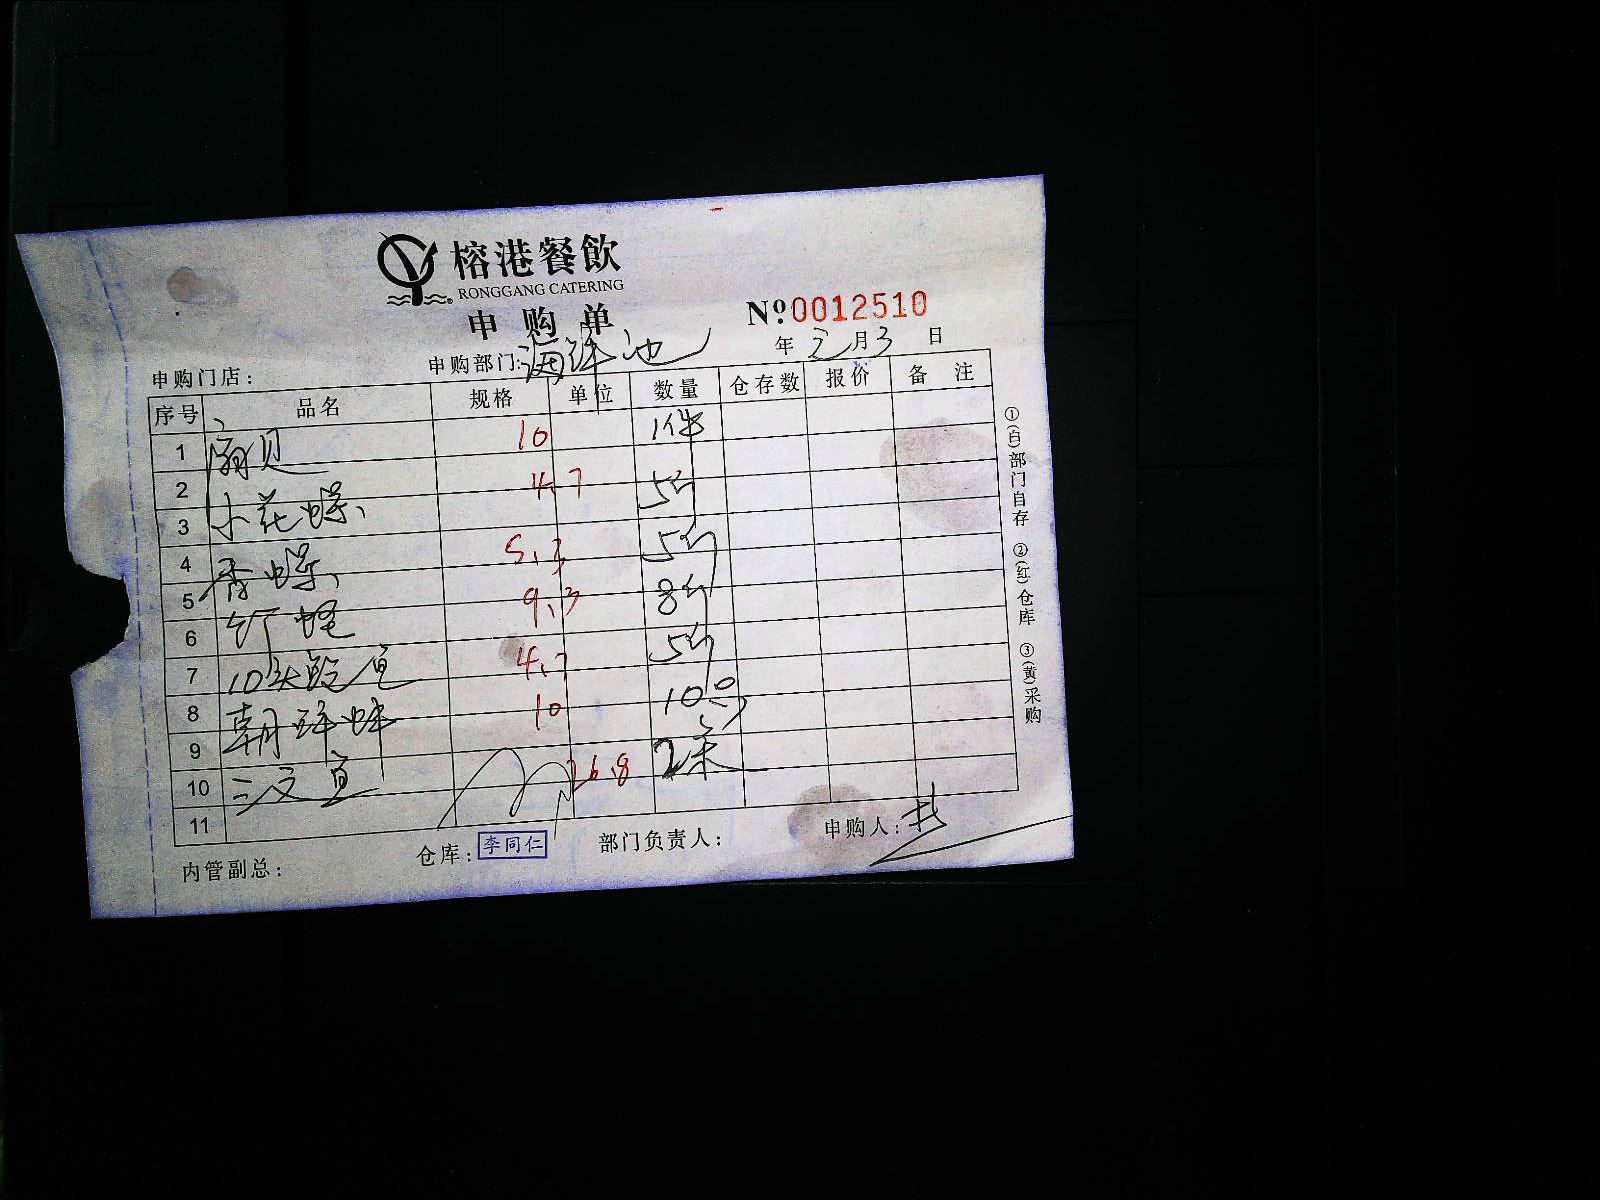 榕港餐飲
RONGGANG CATERING
申购单
№0012510
申购门店：
申购部门：海鲜池
年 三月3日
序号 品名 规格 单位 数量 仓存数 报价 备注
1 扇贝 10 1件
2 4.7 5斤
3 小花螺
4 香螺 5.3 5斤
5 9.3 8斤
6 竹蛏
7 10头鲍鱼 4.7 5斤
8 朝鲜蚌 10 10只
9
10 三文鱼 26.8 2条
11
内管副总：
仓库：李同仁
部门负责人：
申购人：
①(白)部门自存 ②(红)仓库 ③(黄)采购